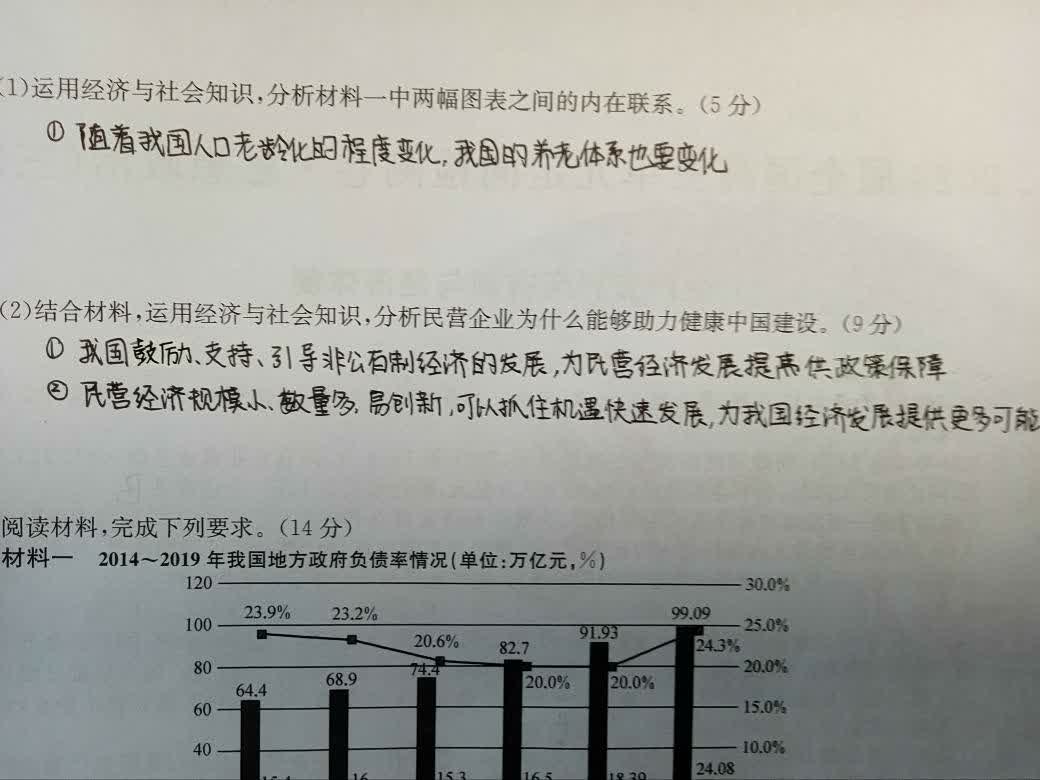 (1)运用经济与社会知识,分析材料一中两幅图表之间的内在联系。(5分)
① 随着我国人口老龄化的程度变化,我国的养老体系也要变化
(2)结合材料,运用经济与社会知识,分析民营企业为什么能够助力健康中国建设。(9分)
① 我国鼓励、支持、引导非公有制经济的发展,为民营经济发展提高供政策保障
② 民营经济规模小、数量多、易创新,可以抓住机遇快速发展,为我国经济发展提供更多可能
阅读材料,完成下列要求。(14分)
材料一 2014~2019年我国地方政府负债率情况(单位:万亿元,%)
120 30.0%
23.9% 23.2% 99.09
100 25.0%
20.6% 82.7 91.93 24.3%
80 74.4 20.0%
64.4 68.9 20.0% 20.0%
60 15.0%
40 10.0%
15.4 16 15.3 16.5 18.39 24.08